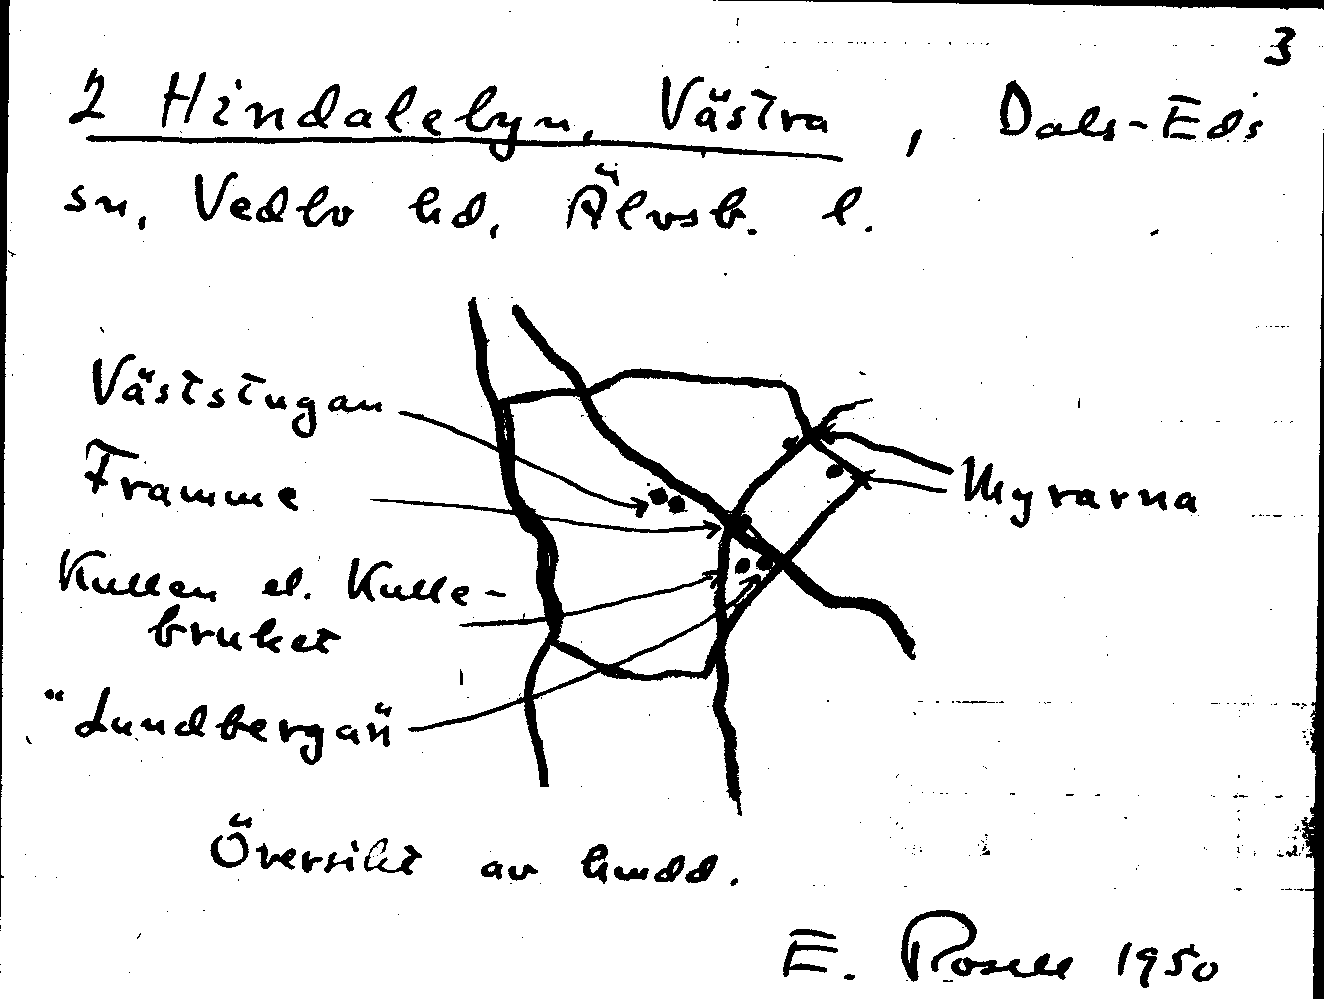 3
2 Hindalebyn, Västra, Dals-Eds
sn, Vedbo hd, Älvsb. l.
Väststugan
Framme
Myrarna
Kullen el. Kulle-
bruket
"Lundbergan"
Översikt av hmdd.
E. Rosell 1950